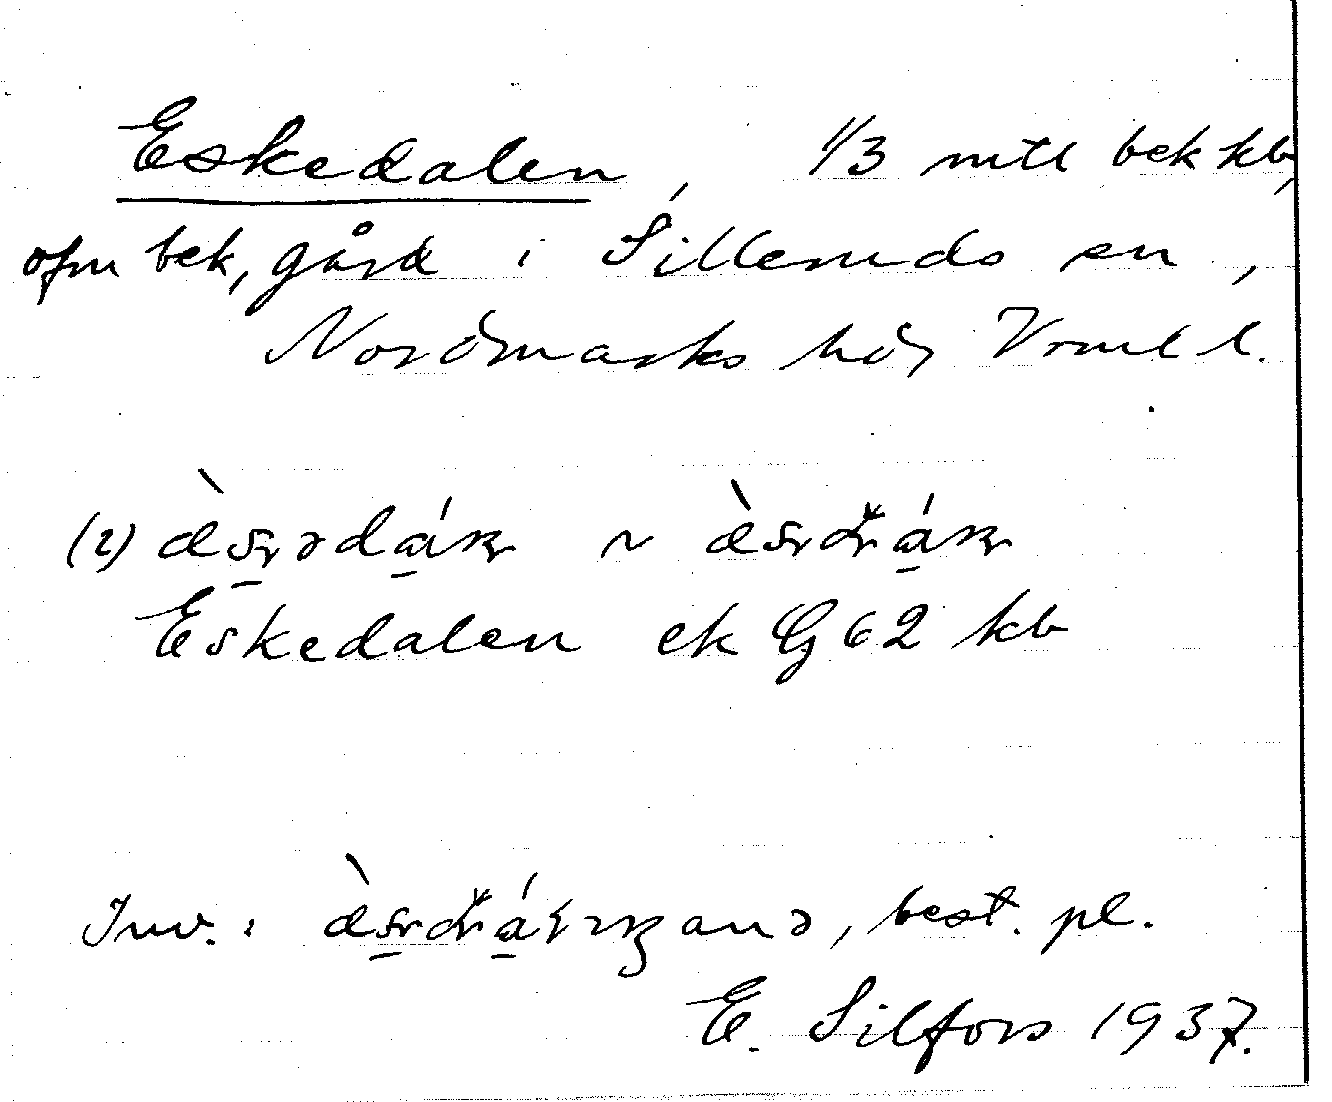 Eskedalen, 1/3 mtl bek kb,
ofm bek, gård i Silleruds sn,
Nordmarks hd, Vrml l.
(2) ~
Eskedalen ek G 62 kb
Inv.: , best. pl.
E. Silfors 1937.